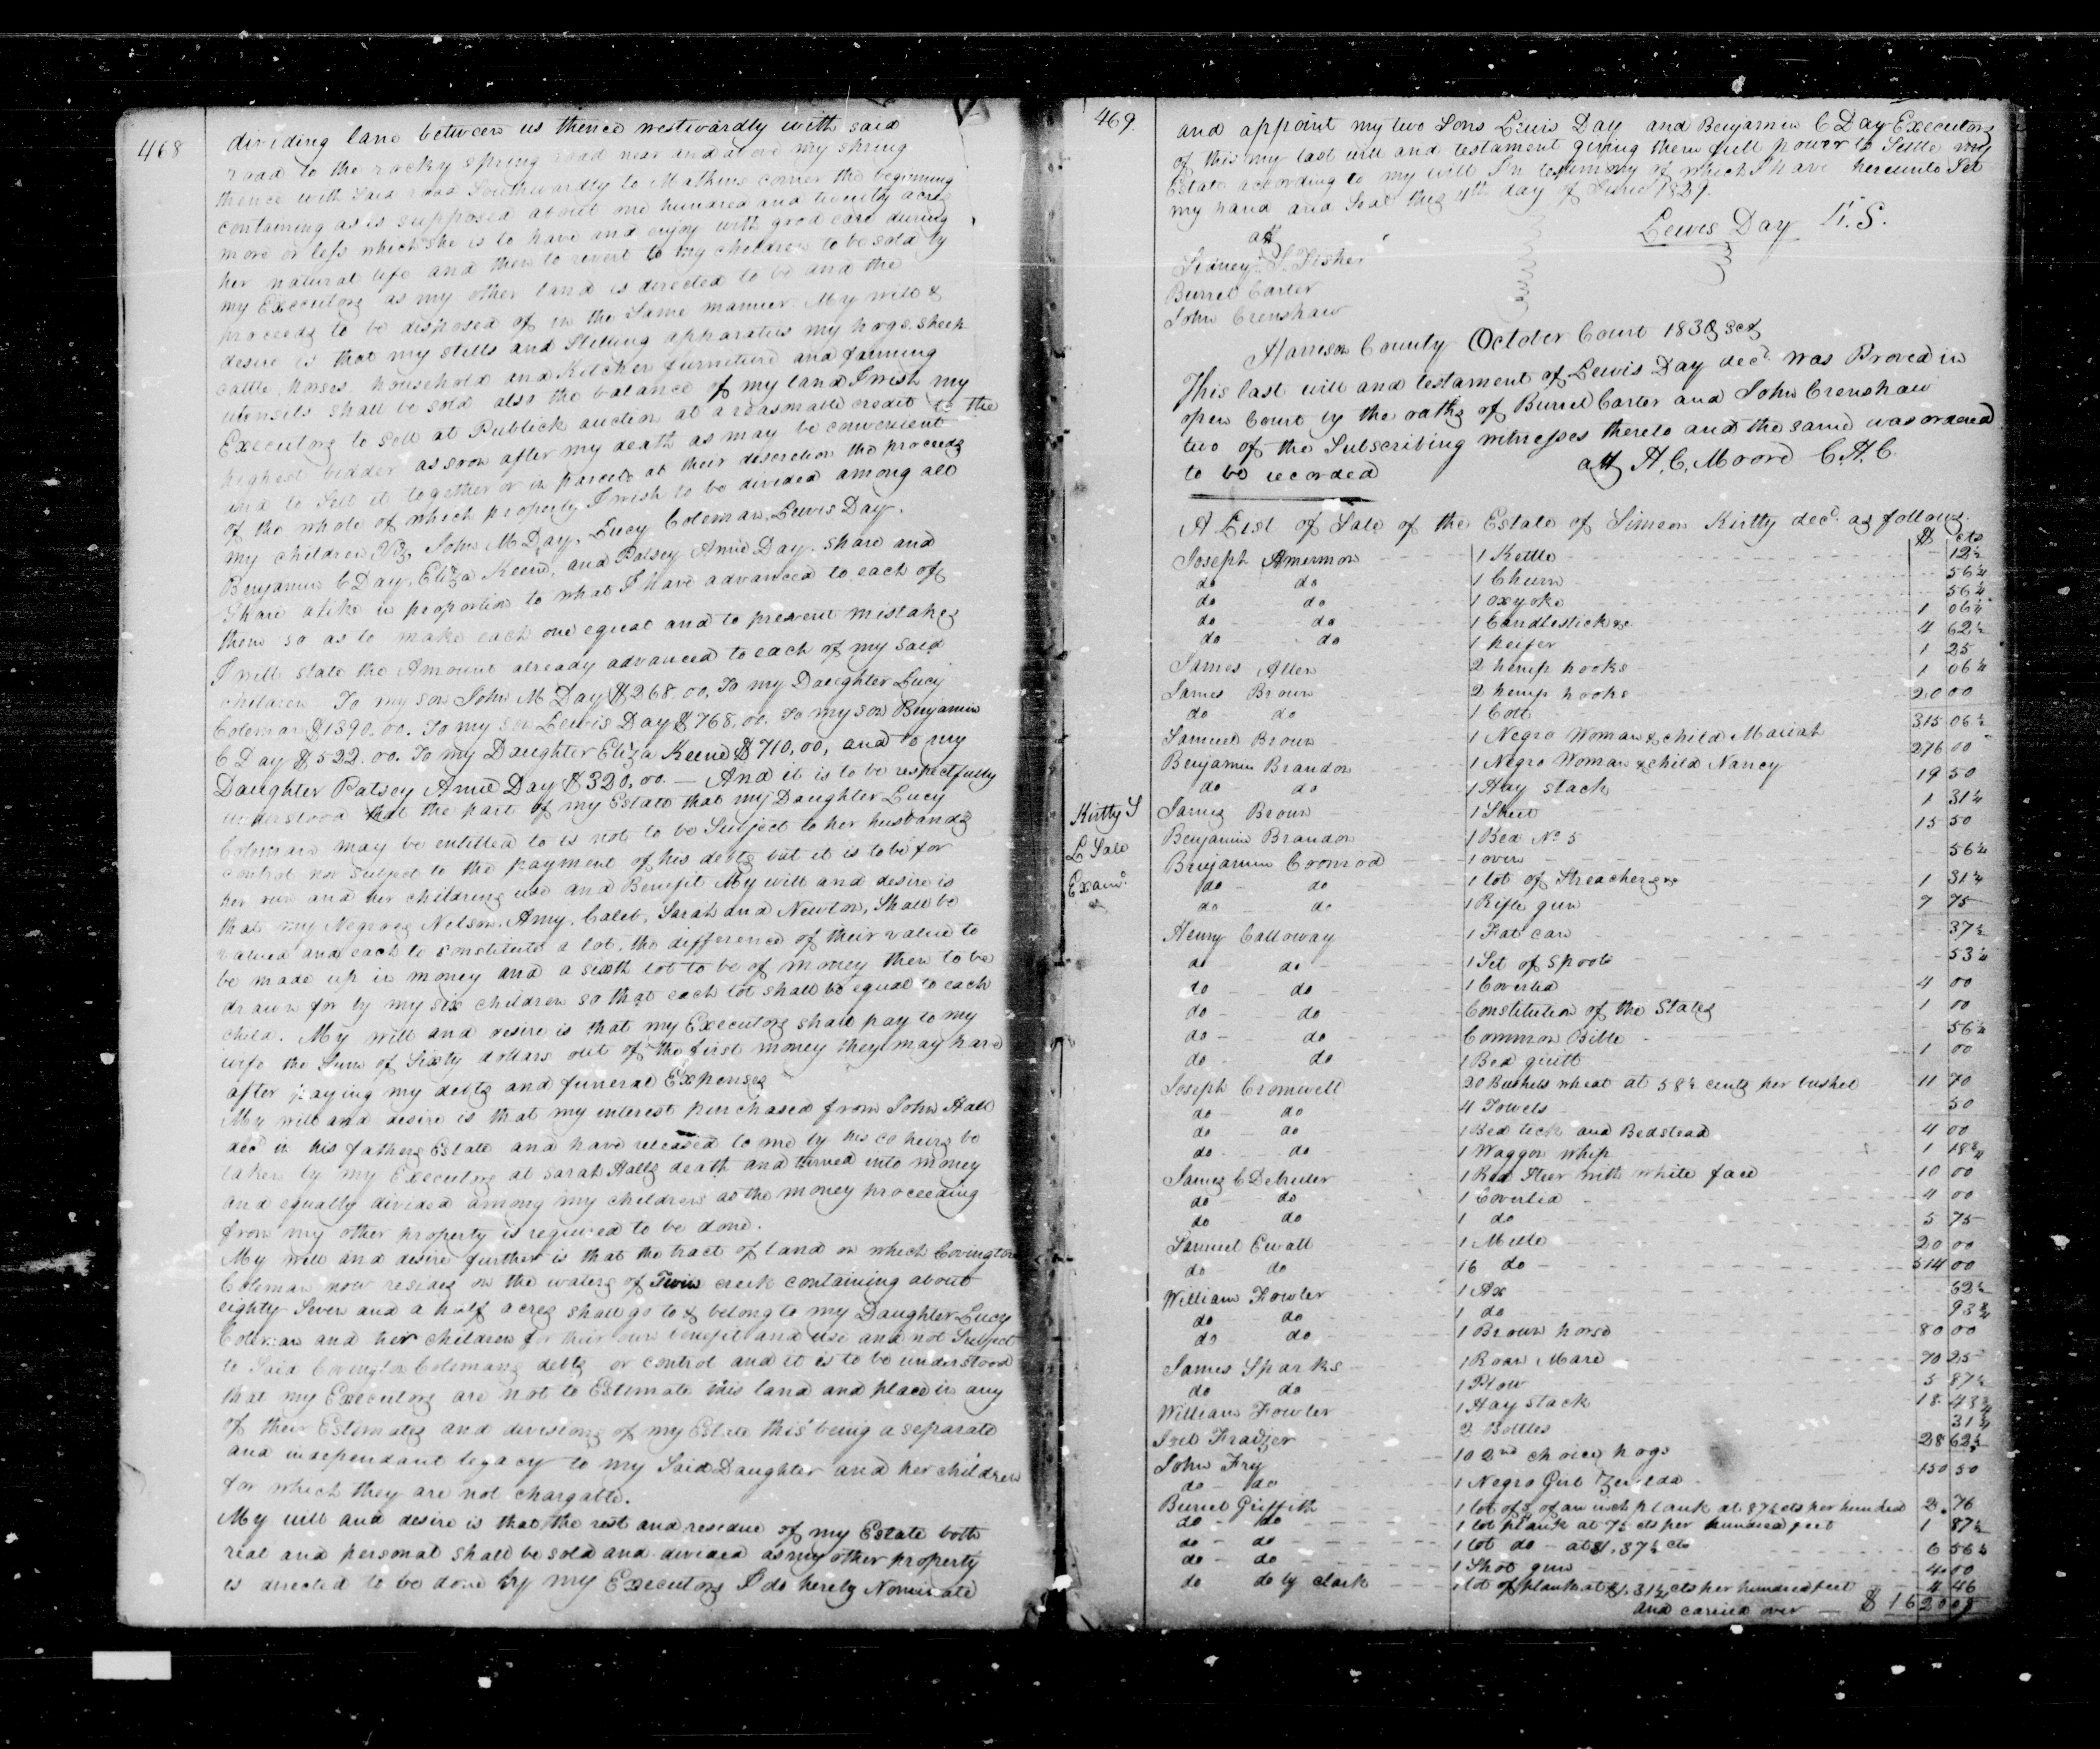 468
dividing land between us thence westwardly with said
road to the rocky spring road near and above my spring
thence with said road Southwardly to Mathews corner the beginning
containing as is supposed about one hundred and twenty acres
more or less which she is to have and enjoy with good care during
her natural life and then to revert to my children to be sold by
my Executors as my other land is directed to be and the
proceeds to be disposed of in the same manner. My will &
desire is that my stills and Stilling apparatus my hogs, sheep
cattle, horses, household and Kitchen furniture and farming
utensils shall be sold also the balance of my land I wish my
Executors to sell at Publick auction at a reasonable credit to the
highest bidder as soon after my death as may be convenient
and to sell it together or in parcels at their discretion the proceeds
of the whole of which property I wish to be divided among all
my children Viz, John M Day, Lucy Coleman, Lewis Day,
Benjamin C Day, Eliza Keene, and Patsey Anne Day, share and
share alike in proportion to what I have advanced to each of
them so as to make each one equal and to prevent mistakes
I will state the Amount already advanced to each of my said
children To my son John M Day $268.00. To my Daughter Lucy
Coleman $1390.00. To my son Lewis Day $768.00. To my son Benjamin
C Day $522.00. To my Daughter Eliza Keene $710.00, and to my
Daughter Patsey Anne Day $320.00. — And it is to be respectfully
understood that the part of my Estate that my Daughter Lucy
Coleman may be entitled to is not to be Subject to her husbands
control nor subject to the payment of his debts but it is to be for
her own and her childrens use and Benefit My will and desire is
that my Negroes Nelson, Amy, Caleb, Sarah and Newton, Shall be
valued and each to constitute a lot, the difference of their value to
be made up in money and a sixth lot to be of money then to be
drawn for by my six children so that each lot shall be equal to each
child. My will and desire is that my Executors shall pay to my
wife the Sum of Sixty dollars out of the first money they may have
after paying my debts and funeral Expenses
My will and desire is that my interest purchased from John Hall
decd in his fathers Estate and have released to me by his co heirs be
taken by my Executors at Sarah Halls death and turned into money
and equally divided among my children as the money proceeding
from my other property is required to be done.
My will and desire further is that the tract of land on which Covington
Coleman now resides on the waters of Twin creek containing about
eighty Seven and a half acres shall go to & belong to my Daughter Lucy
Coleman and her children for their own benefit and use and not Subject
to Said Covington Colemans debts or control and it is to be understood
that my Executors are not to Estimate this land and place in any
of their Estimates and divisions of my Estate this being a separate
and independant legacy to my Said Daughter and her children
for which they are not chargable.
My will and desire is that the rest and residue of my Estate both
real and personal shall be sold and divided as my other property
is directed to be done by my Executors I do hereby Nominate
469
and appoint my two Sons Lewis Day and Benjamin C Day Executors
of this my last will and testament giving them full power to Settle my
Estate according to my will In testimony of which I have hereunto Set
my hand and Seal this 4th day of June 1829.
Lewis Day L.S.
att
Sidney S. Fisher
Burrel Carter
John Crenshaw
Harrison County October Court 1830 Sct
This last will and testament of Lewis Day decd. was Proved in
open Court by the oaths of Burrel Carter and John Crenshaw
two of the Subscribing witnesses thereto and the same was ordered
to be recorded
att H. C. Moore C.H.C.
A List of Sale of the Estate of Simeon Kirtly decd. as follows.
$ cts
Joseph Amermon 1 Kettle 12½
do do 1 Churn 56¼
do do 1 oxyoke 56¼
do do 1 Candlestick &c 1 06¼
do do 1 heifer 4 62½
James Allen 2 hemp hooks 1 25
James Brown 2 hemp hooks 1 06¼
do do 1 Colt 20 00
Samuel Brown 1 Negro Woman & child Mariah 315 06¼
Benjamin Brandon 1 Negro Woman & child Nancy 276 00
do do 1 Hay stack 19 50
Kirtly S
L Sale
Examd.
James Brown 1 Sheet 1 31¼
Benjamin Brandon 1 Bed No 5 15 50
Benjamin Conrod 1 oven 56¼
do do 1 lot of Streachers &c 1 31¼
do do 1 Rifle gun 7 75
Henry Calloway 1 Fat can 37½
do do 1 Set of Spools 53¼
do do 1 Coverled 4 00
do do Constitution of the States 1 00
do do Common Bible 56¼
do do 1 Bed quilt 1 00
Joseph Cromwell 20 Bushels wheat at 58½ cents per bushel 11 70
do do 4 Towels 50
do do 1 Bed tick and Bedstead 4 00
do do 1 Waggon whip 1 18¾
James C Debruler 1 Red Steer with white face 10 00
do do 1 Coverled 4 00
do do 1 do 5 75
Samuel Ewalt 1 Mule 20 00
do do 16 do 514 00
William Fowler 1 Ax 62½
do do 1 do 93¾
do do 1 Brown horse 80 00
James Sparks 1 Roan Mare 70 25
do do 1 Plow 5 87½
William Fowler 1 Hay stack 18 43¾
Joel Frazier 2 Bottles 31¼
John Fry 10 2nd choice hogs 28 62½
do do 1 Negro Girl Zerelda 150 50
Burrel Griffith 1 lot of 5 of an inch plank at 87½ cts per hundred 2. 76
do do 1 lot plank at 75 cts per hundred feet 1 87½
do do 1 lot do at $1.37½ cts 6 56¼
do do 1 Shot gun 4.00
do do by clark 1 lot of plank at $1.31¼ cts per hundred feet 4 46
and carried over — $ 1620 09